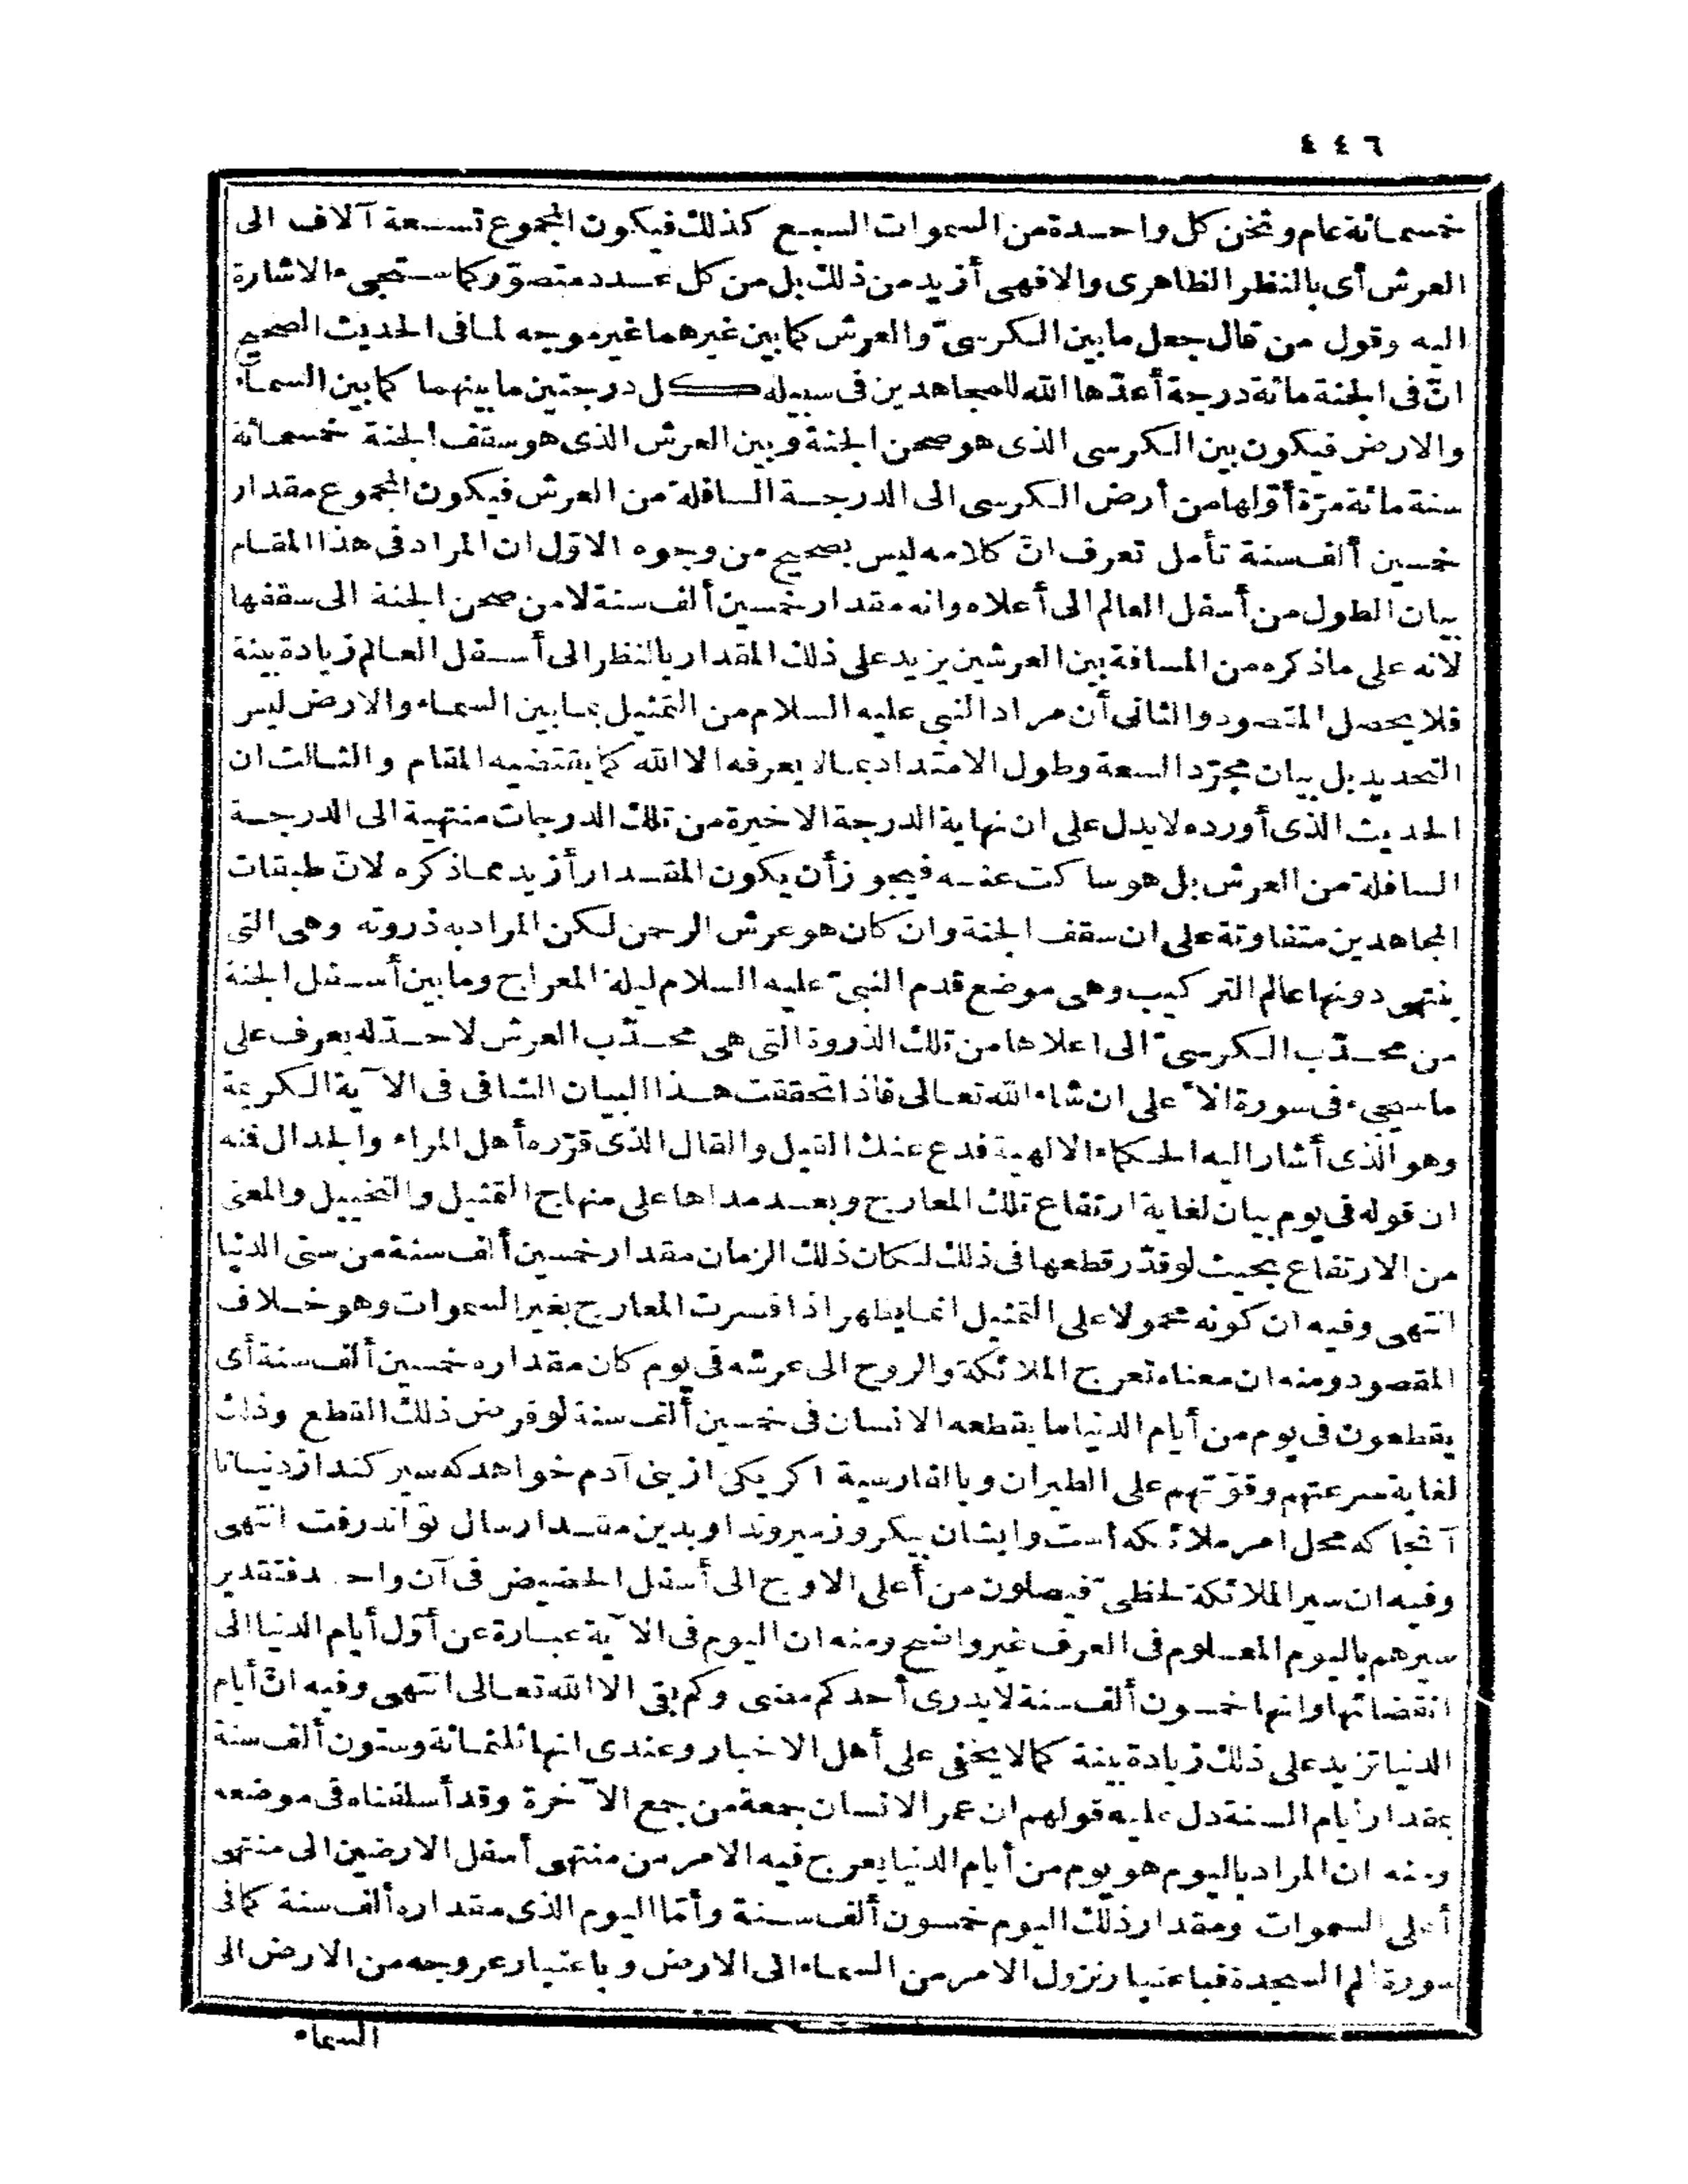 ٤٤٦
خمسمائة عام وثخن كل واحدة من السموات السبع كذلك فيكون المجموع تسعة آلاف الى
العرش أى بالنظر الظاهرى والافهى أزيد من ذلك بل من كل عدد متصوّر كما ستجىء الاشارة
اليه وقول من قال جعل ما بين الكرسىّ والعرش كما بين غيرهما غير موجه لما فى الحديث الصحيح
انّ فى الجنة مائة درجة أعدّها الله للمجاهدين فى سبيله كل درجتين ما بينهما كما بين السماء
والارض فيكون بين الكرسى الذى هو صحن الجنة وبين العرش الذى هو سقف الجنة خمسمائة
سنة مائة مرّة أوّلها من أرض الكرسى الى الدرجة السافلة من العرش فيكون المجموع مقدار
خمسين ألف سنة تأمل تعرف انّ كلامه ليس بصحيح من وجوه الاوّل ان المراد فى هذا المقام
بيان الطول من أسفل العالم الى أعلاه وانه مقدار خمسين ألف سنة لا من صحن الجنة الى سقفها
لانه على ما ذكره من المسافة بين العرشين يزيد على ذلك المقدار بالنظر الى أسفل العالم زيادة بينة
فلا يحصل المقصود والثانى أن مراد النبى عليه السلام من التمثيل بما بين السماء والارض ليس
التحديد بل بيان مجرّد السعة وطول الامتداد بما لا يعرفه الا الله كما يقتضيه المقام والثالث ان
الحديث الذى أورده لا يدل على ان نهاية الدرجة الاخيرة من تلك الدرجات منتهية الى الدرجة
السافلة من العرش بل هو ساكت عنه فيجوز أن يكون المقدار أزيد مما ذكره لانّ طبقات
المجاهدين متفاوتة على ان سقف الجنة وان كان هو عرش الرحمن لكن المراد به ذروته وهى التى
ينتهى دونها عالم التركيب وهى موضع قدم النبىّ عليه السلام ليلة المعراج وما بين أسفل الجنة
من محدّب الكرسىّ الى اعلاها من تلك الذروة التى هى محدّب العرش لا حدّ له يعرف على
ما سيجىء فى سورة الأعلى ان شاء الله تعالى فاذا تحققت هذا البيان الشافى فى الآية الكريمة
وهو الذى أشار اليه الحكماء الالهية فدع عنك القيل والقال الذى قرّره أهل المراء والجدال فنه
ان قوله فى يوم بيان لغاية ارتفاع تلك المعارج وبعد مداها على منهاج التمثيل والتخييل والمعنى
من الارتفاع بحيث لو قدّر قطعها فى ذلك لكان ذلك الزمان مقدار خمسين ألف سنة من سنى الدنيا
انتهى وفيه ان كونه محمولا على التمثيل انما يظهر اذا فسرت المعارج بغير السموات وهو خلاف
المقصود ومنه ان معناه تعرج الملائكة والروح الى عرشه فى يوم كان مقداره خمسين ألف سنة أى
يقطعون فى يوم من أيام الدنيا ما يقطعه الانسان فى خمسين ألف سنة لو فرض ذلك القطع وذلك
لغاية سرعتهم وقوّتهم على الطيران وبالفارسية اكر يكى از بنى آدم خواهد كه سير كند از دنيا تا
آنجا كه محل امر ملائكه است وايشان بيكروز ميروند او بدين مقدار سال تواند رفت انتهى
وفيه ان سير الملائكة لحظىّ فيصلون من أعلى الاوج الى أسفل الحضيض فى آن واحد فتقدير
سيرهم باليوم المعلوم فى العرف غير واضح ومنه ان اليوم فى الآية عبارة عن أوّل أيام الدنيا الى
انقضائها وانها خمسون ألف سنة لا يدرى أحدكم مضى وكم بقى الا الله تعالى انتهى وفيه انّ أيام
الدنيا تزيد على ذلك زيادة بينة كما لا يخفى على أهل الاخبار وعندى انها ثلثمائة وستون ألف سنة
بمقدار أيام السنة دل عليه قولهم ان عمر الانسان جمعة من جمع الآخرة وقد أسلفناه فى موضعه
ومنه ان المراد باليوم هو يوم من أيام الدنيا يعرج فيه الامر من منتهى أسفل الارضين الى منتهى
أعلى السموات ومقدار ذلك اليوم خمسون ألف سنة وأمّا اليوم الذى مقداره ألف سنة كما فى
سورة الم السجدة فباعتبار نزول الامر من السماء الى الارض وباعتبار عروجه من الارض الى
السماء